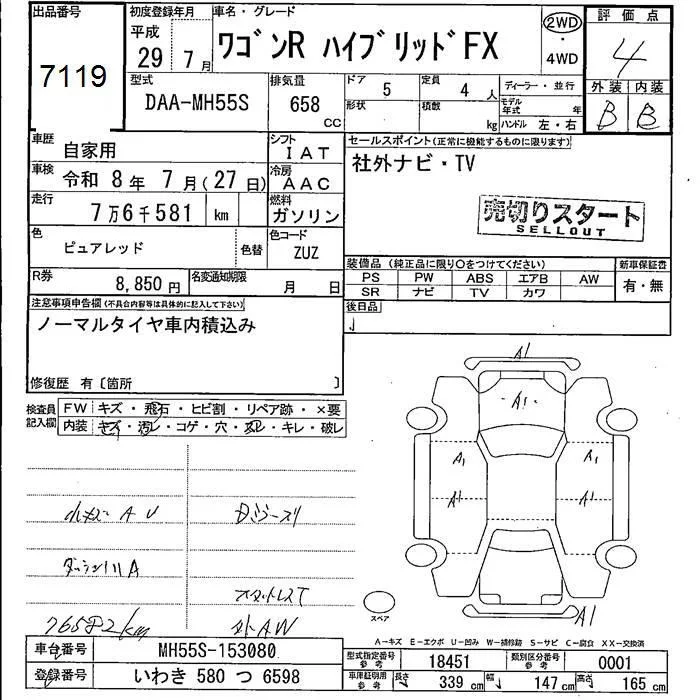 出品番号
7119
初度登録年月
平成
29 年 7 月
車名・グレード
ワゴンR ハイブリッドFX
2WD
・
4WD
評価点
4
外装 内装
B B
型式
DAA-MH55S
排気量
658
CC
ドア
5
定員
4 人
形状
積数
kg
ディーラー・並行
モデル年式 年
ハンドル 左・右
車歴
自家用
シフト
IAT
車検
令和 8年 7月(27日)
冷房
AAC
走行
7万6千581 km
燃料
ガソリン
色
ピュアレッド
色替
色コード
ZUZ
R券
8,850円
名変通知期限
月 日
セールスポイント(正常に機能するものに限ります)
社外ナビ・TV
売切りスタート
SELLOUT
装備品(純正品に限り○をつけてください)
PS PW ABS エアB AW
SR ナビ TV カワ
新車保証書
有・無
後日品
注意事項申告欄(不具合内容等は具体的に記入して下さい)
ノーマルタイヤ車内積込み
修復歴 有〔箇所 〕
検査員
記入欄
FW キズ・飛石・ヒビ割・リペア跡・×要
内装 キズ・汚レ・コゲ・穴・スレ・キレ・破レ
A U
A
76582km
外AW
A1
A1
A1
A1
A1
A1
A1
スペア
A-キズ E-エクボ U-凹み W-補修跡 S-サビ C-腐食 XX-交換済
車台番号
MH55S-153080
登録番号
いわき 580 つ 6598
型式指定番号
参考
18451
類別区分番号
参考
0001
車庫証明用
参考
長さ
339 cm
幅
147 cm
高さ
165 cm